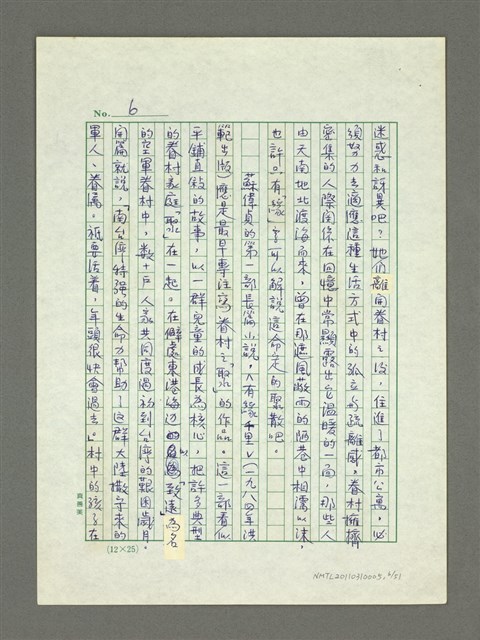 No. 6
迷惑和訝異吧？她們離開眷村之後，住進了都市公寓，必
須努力去適應這種生活方式中的孤立與疏離感，眷村擁擠
密集的人際關係在回憶中常顯露出它溫暖的一面，那些人
由天南地北渡海而來，曾在那遮風蔽雨的陋巷中相濡以沫，
也許只「有緣」字可以解說這命定的聚散吧。
蘇偉貞的第一部長篇小說，〈有緣千里〉（一九八四年洪
範出版）應是最早專注寫眷村之「聚」的作品。這一部看似
平鋪直敍的故事，以一群兒童的成長為核心，把許多典型
的眷村家庭「聚」在一起。在僻處東港海边以「致遠」為名
的空軍眷村中，數十戶人家共同度過初到台灣的艱困歲月。
開篇就說，「南台灣特强的生命力幫助了这群大陸撤守來的
軍人、眷屬。祇要活着，年頭很快會過去」。村中的孩子在
(12×25)
NMTL20110310005, 6/51